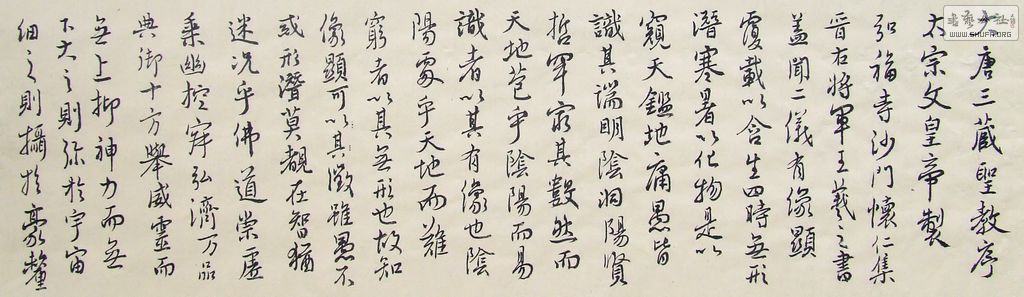 大唐三藏聖教序
太宗文皇帝製
弘福寺沙門懷仁集
晉右將軍王羲之書
蓋聞二儀有像顯
覆載以含生四時無形
潛寒暑以化物是以
窺天鑑地庸愚皆
識其端明陰洞陽賢
哲罕窮其數然而
天地苞乎陰陽而易
識者以其有像也陰
陽處乎天地而難
窮者以其無形也故知
像顯可以其徵雖愚不
或形潛莫覩在智猶
迷況乎佛道崇虛
乘幽控寂弘濟万品
典御十方舉威靈而
無上抑神力而無
下大之則弥於宇宙
細之則攝於豪釐
WWW.SHUFA.ORG